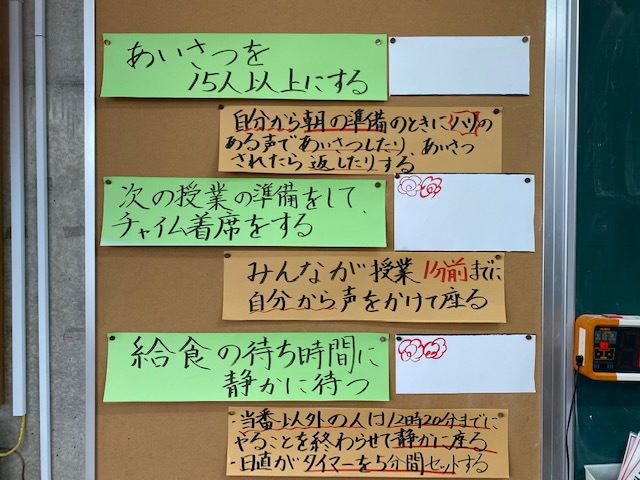 あいさつを
15人以上にする
自分から朝の準備のときにハリの
ある声であいさつしたり、あいさつ
されたら返したりする
次の授業の準備をして、
チャイム着席をする
みんなが授業1分前までに
自分から声をかけて座る
給食の待ち時間に
静かに待つ
・当番以外の人は12時20分までに
やることを終わらせて静かに座る
・日直がタイマーを5分間セットする